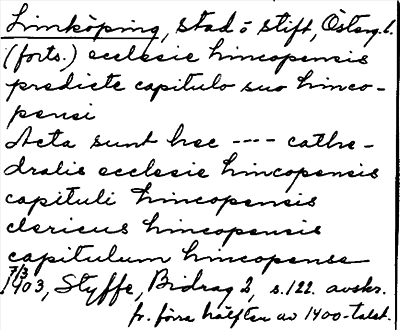 Linköping, stad o stift, Österg. l.
(forts.) ecclesie lincopensis
predicte capitulo suo linco-
pensi
Acta sunt hec ---- cathe-
dralis ecclesie lincopensis
capituli lincopensis
clericus lincopensis
capitulum lincopense
7/3 1403, Styffe, Bidrag 2, s. 122. avskr.
fr. förra hälften av 1400-talet.